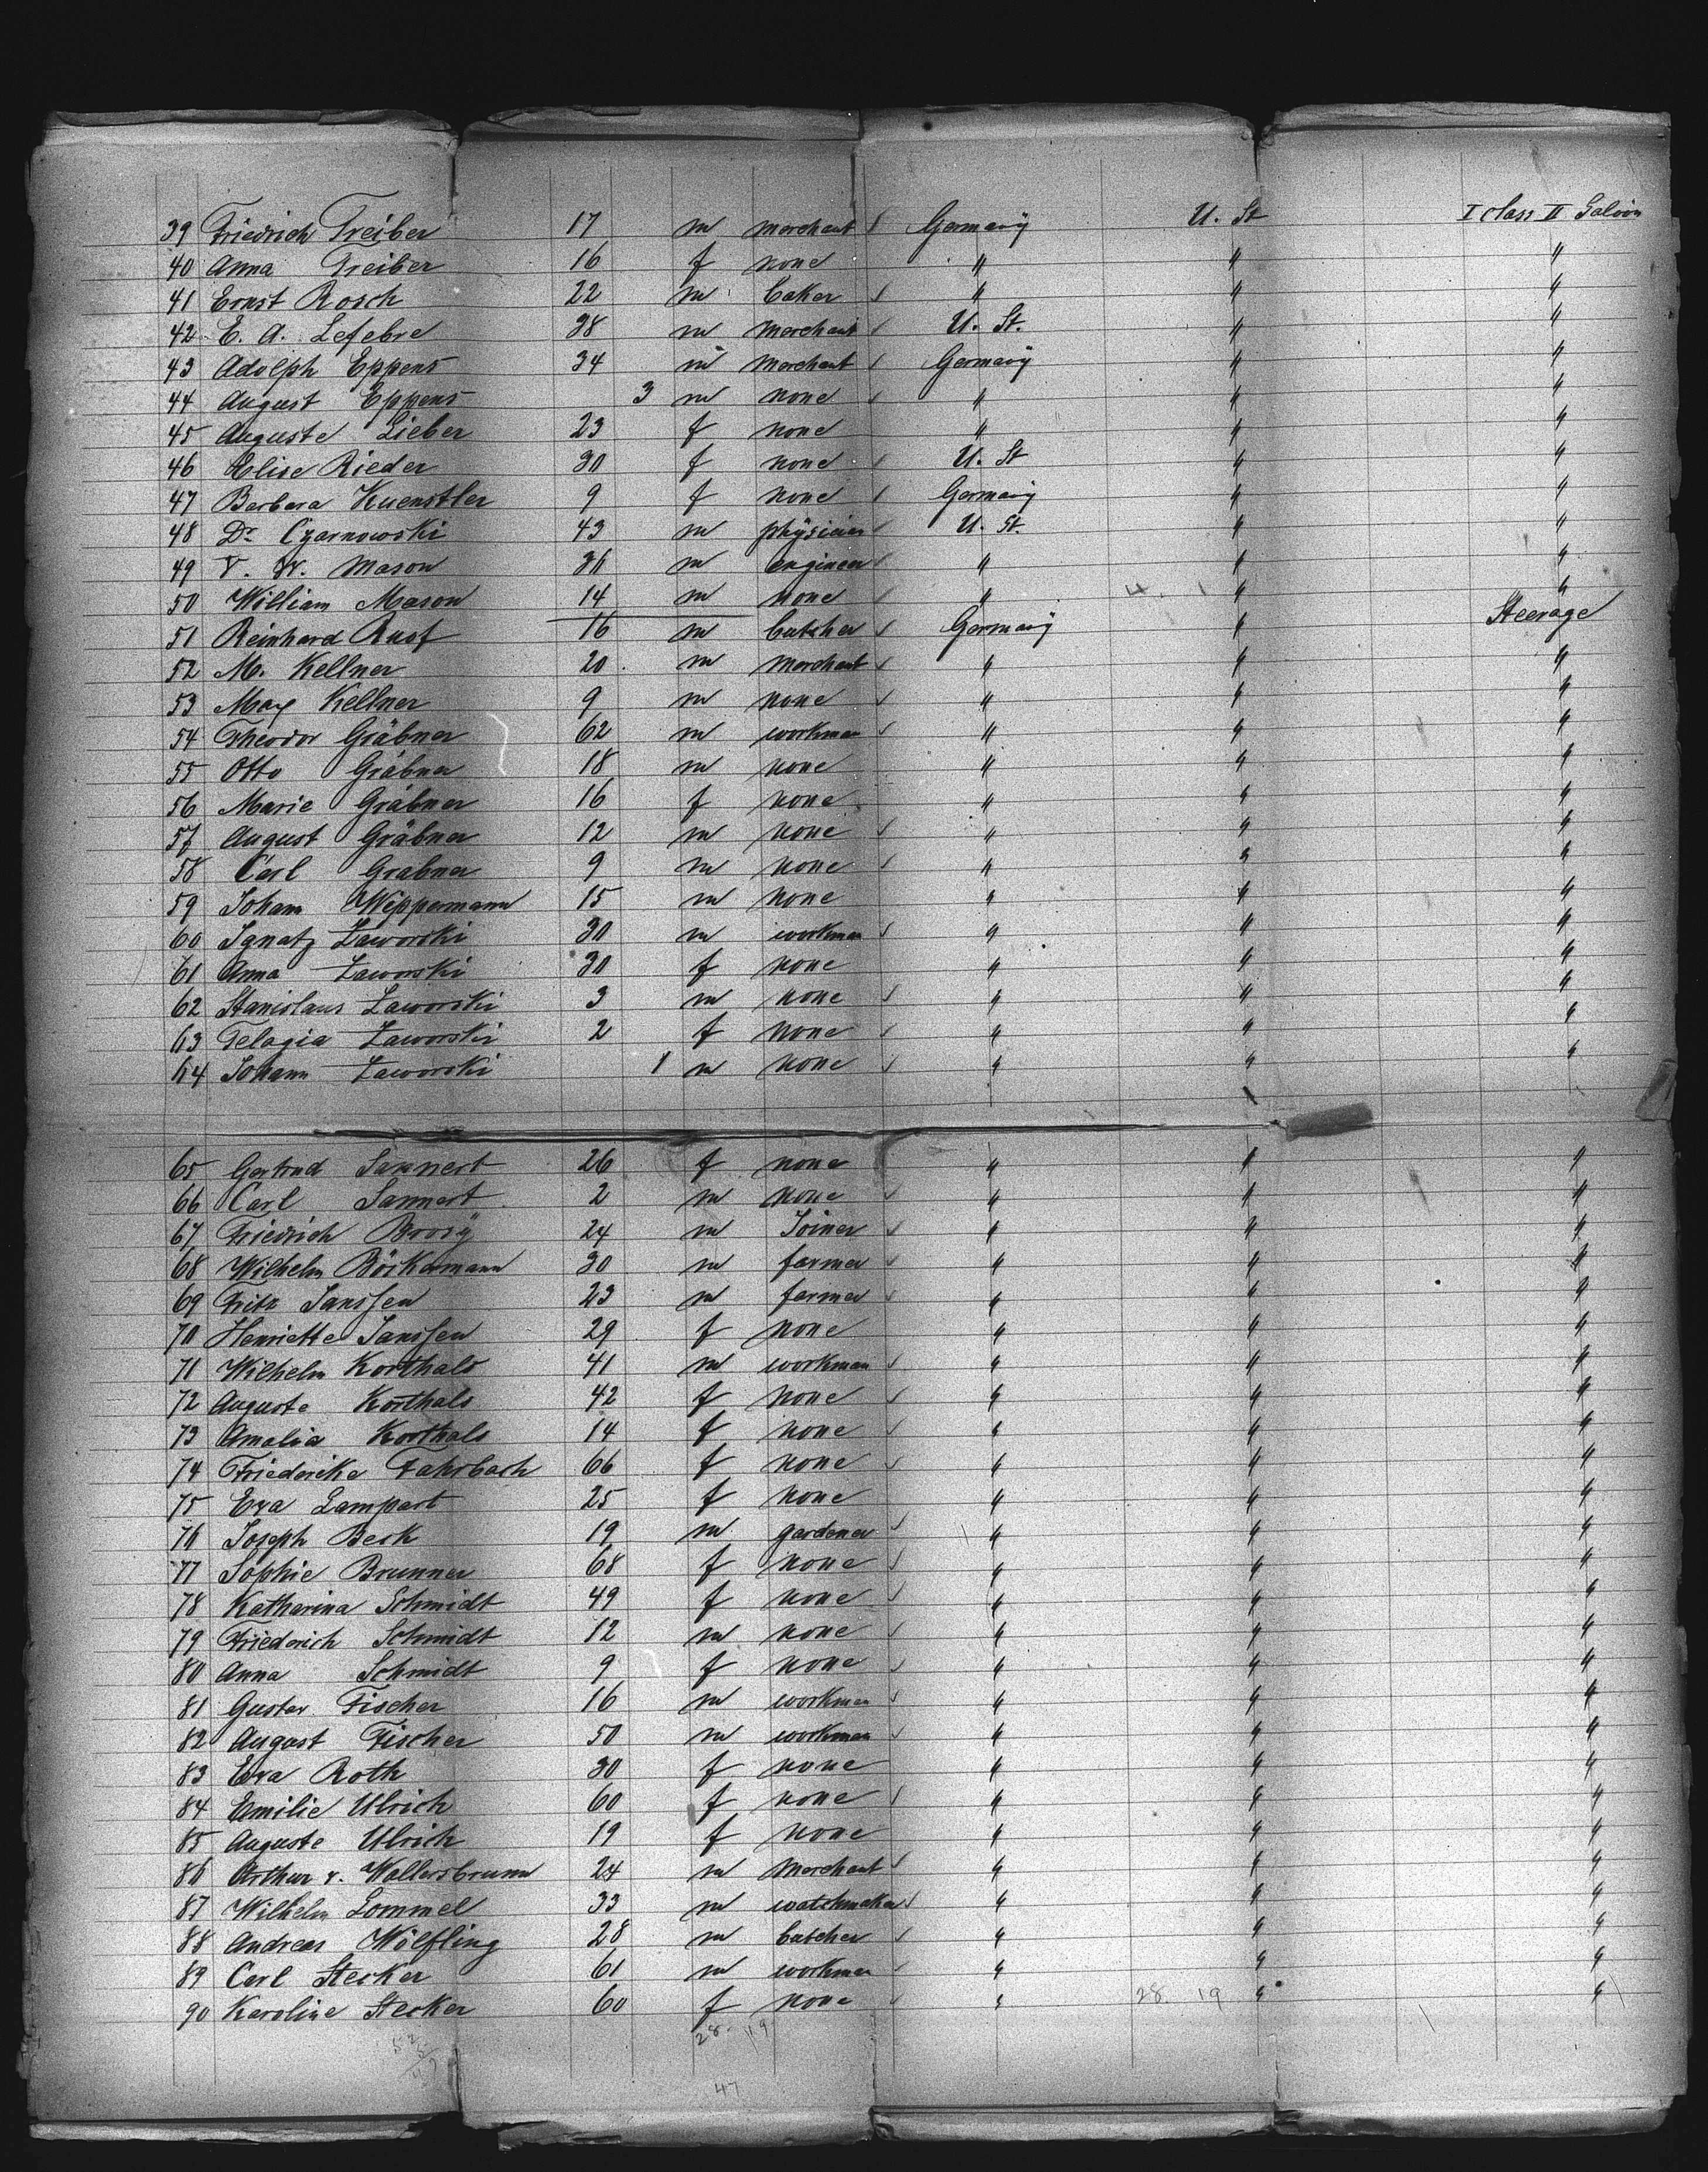 39 Friedrich Treiber 17 m merchant Germany U. St I class II Saloon
40 Anna Treiber 16 f none " " "
41 Ernst Rosch 22 m baker " " "
42 E. A. Lefebre 38 m merchant U. St. " "
43 Adolph Eppens 34 m merchant Germany " "
44 August Eppens 3 m none " " "
45 Auguste Lieber 23 f none " " "
46 Elise Rieder 30 f none U. St " "
47 Barbara Kuenstler 9 f none Germany " "
48 Dr Czarnowski 43 m physician U. St. " "
49 V. W. Mason 36 m engineer " " "
50 William Mason 14 m none " " "
51 Reinhard Rusf 16 m butcher Germany " Steerage
52 M. Kellner 20 m merchant " " "
53 Max Kellner 9 m none " " "
54 Theodor Gräbner 62 m workman " " "
55 Otto Gräbner 18 m none " " "
56 Marie Gräbner 16 f none " " "
57 August Gräbner 12 m none " " "
58 Carl Grabner 9 m none " " "
59 Johann Wippermann 15 m none " " "
60 Ignatz Zaworski 30 m workman " " "
61 Anna Zaworski 30 f none " " "
62 Stanislaus Zaworski 3 m none " " "
63 Pelagia Zaworski 2 f none " " "
64 Johann Zaworski 1 m none " " "
65 Gertrud Sannert 26 f none " " "
66 Carl Sannert 2 m none " " "
67 Friedrich Brosy 24 m Joiner " " "
68 Wilhelm Böckermann 30 m farmer " " "
69 Fritz Janssen 23 m farmer " " "
70 Henriette Janssen 29 f none " " "
71 Wilhelm Korthals 41 m workman " " "
72 Auguste Korthals 42 f none " " "
73 Amalia Korthals 14 f none " " "
74 Friedericke Fahrbach 66 f none " " "
75 Eva Lampart 25 f none " " "
76 Joseph Beck 19 m gardener " " "
77 Sophie Brunner 68 f none " " "
78 Katharina Schmidt 49 f none " " "
79 Friederich Schmidt 12 m none " " "
80 Anna Schmidt 9 f none " " "
81 Gustav Fischer 16 m workman " " "
82 August Fischer 50 m workman " " "
83 Eva Roth 30 f none " " "
84 Emilie Ulrich 60 f none " " "
85 Auguste Ulrich 19 f none " " "
86 Arthur v. Wallersbrunn 24 m merchant " " "
87 Wilhelm Lommel 33 m watchmaker " " "
88 Andreas Wölfling 28 m butcher " " "
89 Carl Stecker 61 m workman " " "
90 Karoline Stecker 60 f none " 28. 19 " "
28. 19
47